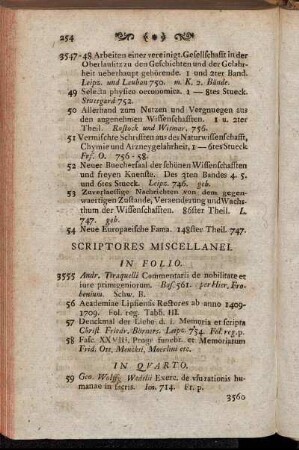 254
3547-48 Arbeiten einer vereinigt. Gesellschafft in der
Oberlausitz zu den Geschichten und der Gelahr-
heit ueberhaupt gehörende. 1 und 2ter Band.
Leipz. und Lauban 750. m. K. 2. Bände.
49 Selecta physico oeconomica. 1 — 8tes Stueck.
Stutegard 752.
50 Allerhand zum Nutzen und Vergnuegen aus
den angenehmen Wissenschafften. 1 u. 2ter
Theil. Rostock und Wismar. 756.
51 Vermischte Schrifften aus der Naturwissenschafft,
Chymie und Arzneygelahrheit, 1 — 6tes Stueck
Frf. O. 756 - 58.
52 Neuer Buechersaal der schönen Wissenschafften
und freyen Kuenste. Des 3ten Bandes 4. 5.
und 6tes Stueck. Leipz. 746. geb.
53 Zuverlaessige Nachrichten von dem gegen-
waertigen Zustande, Veraenderung und Wachs-
thum der Wissenschafften. 86ster Theil. L.
747. geb.
54 Neue Europaeische Fama. 148ster Theil. 747.
SCRIPTORES MISCELLANEI.
IN FOLIO.
3555 Andr. Tiraquelli Commentarii de nobilitate et
iure primigeniorum. Bas. 561. per Hier. Fro-
benium. Schw. B.
56 Academiae Lipsiensis Rectores ab anno 1409-
1709. Fol. reg. Tabb. III.
57 Denckmal der Liebe d. i. Memoria et scripta
Christ. Frieder. Börneri. Leipz. 754. Fol. reg. p.
58 Fasc. XXVIII. Progr. funebr. et Memoriarum
Frid. Ott. Menckii, Mascovii etc.
IN QVARTO.
59 Geo. Wolffg. Wedelii Exerc. de vsurationis hu-
manae in sacris. Ien. 714. Fr. p.
3560